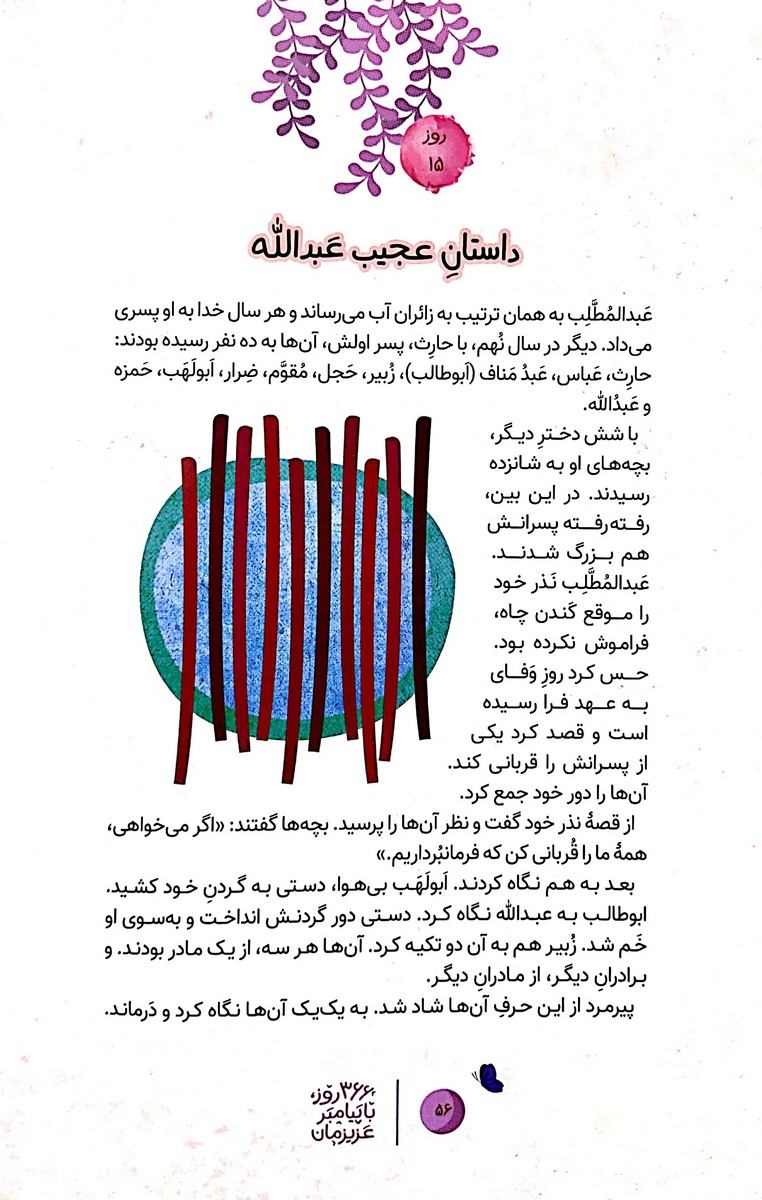 روز
۱۵
داستانِ عجیب عَبدالله
عَبدالمُطَّلِب به همان ترتیب به زائران آب می‌رساند و هر سال خدا به او پسری
می‌داد. دیگر در سال نُهم، با حارِث، پسر اولش، آن‌ها به ده نفر رسیده بودند:
حارِث، عَباس، عَبدُ مَناف (اَبوطالب)، زُبیر، حَجل، مُقوَّم، ضِرار، اَبولَهَب، حَمزه
و عَبدُالله.
با شش دخترِ دیگر،
بچه‌های او به شانزده
رسیدند. در این بین،
رفته‌رفته پسرانش
هم بزرگ شدند.
عَبدالمُطَّلِب نَذر خود
را موقع کَندن چاه،
فراموش نکرده بود.
حس کرد روزِ وَفای
به عهد فرا رسیده
است و قصد کرد یکی
از پسرانش را قربانی کند.
آن‌ها را دور خود جمع کرد.
از قصهٔ نذر خود گفت و نظر آن‌ها را پرسید. بچه‌ها گفتند: «اگر می‌خواهی،
همهٔ ما را قُربانی کن که فرمانبُرداریم.»
بعد به هم نگاه کردند. اَبولَهَب بی‌هوا، دستی به گردنِ خود کشید.
ابوطالب به عبدالله نگاه کرد. دستی دور گردنش انداخت و به‌سوی او
خَم شد. زُبیر هم به آن دو تکیه کرد. آن‌ها هر سه، از یک مادر بودند. و
برادرانِ دیگر، از مادرانِ دیگر.
پیرمرد از این حرفِ آن‌ها شاد شد. به یک‌یک آن‌ها نگاه کرد و دَرماند.
۵۶
۳۶۶ روز،
با پیامبر
عزیزمان